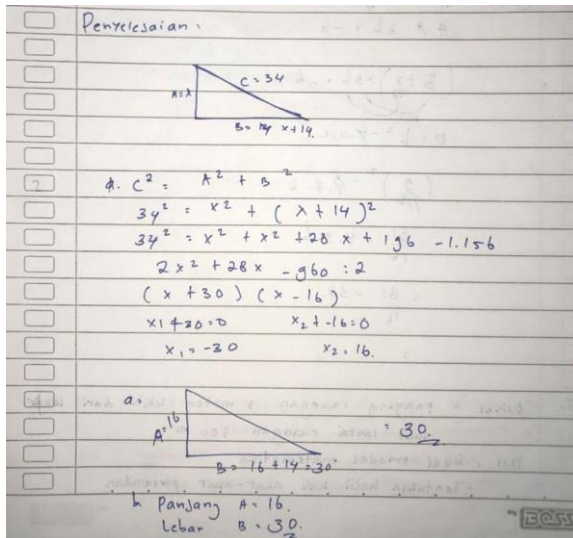 Penyelesaian :
C = 34
A = x
B = x + 14.
d. C² = A² + B²
34² = x² + ( x + 14 )²
34² = x² + x² + 28 x + 196 - 1.156
2x² + 28x - 960 : 2
( x + 30 ) ( x - 16 )
x1 + 30 = 0 x2 + -16 = 0
x1 = -30 x2 = 16.
a.
A = 16
= 30.
B = 16 + 14 = 30
b. Panjang A = 16.
Lebar B = 30.
BOSS